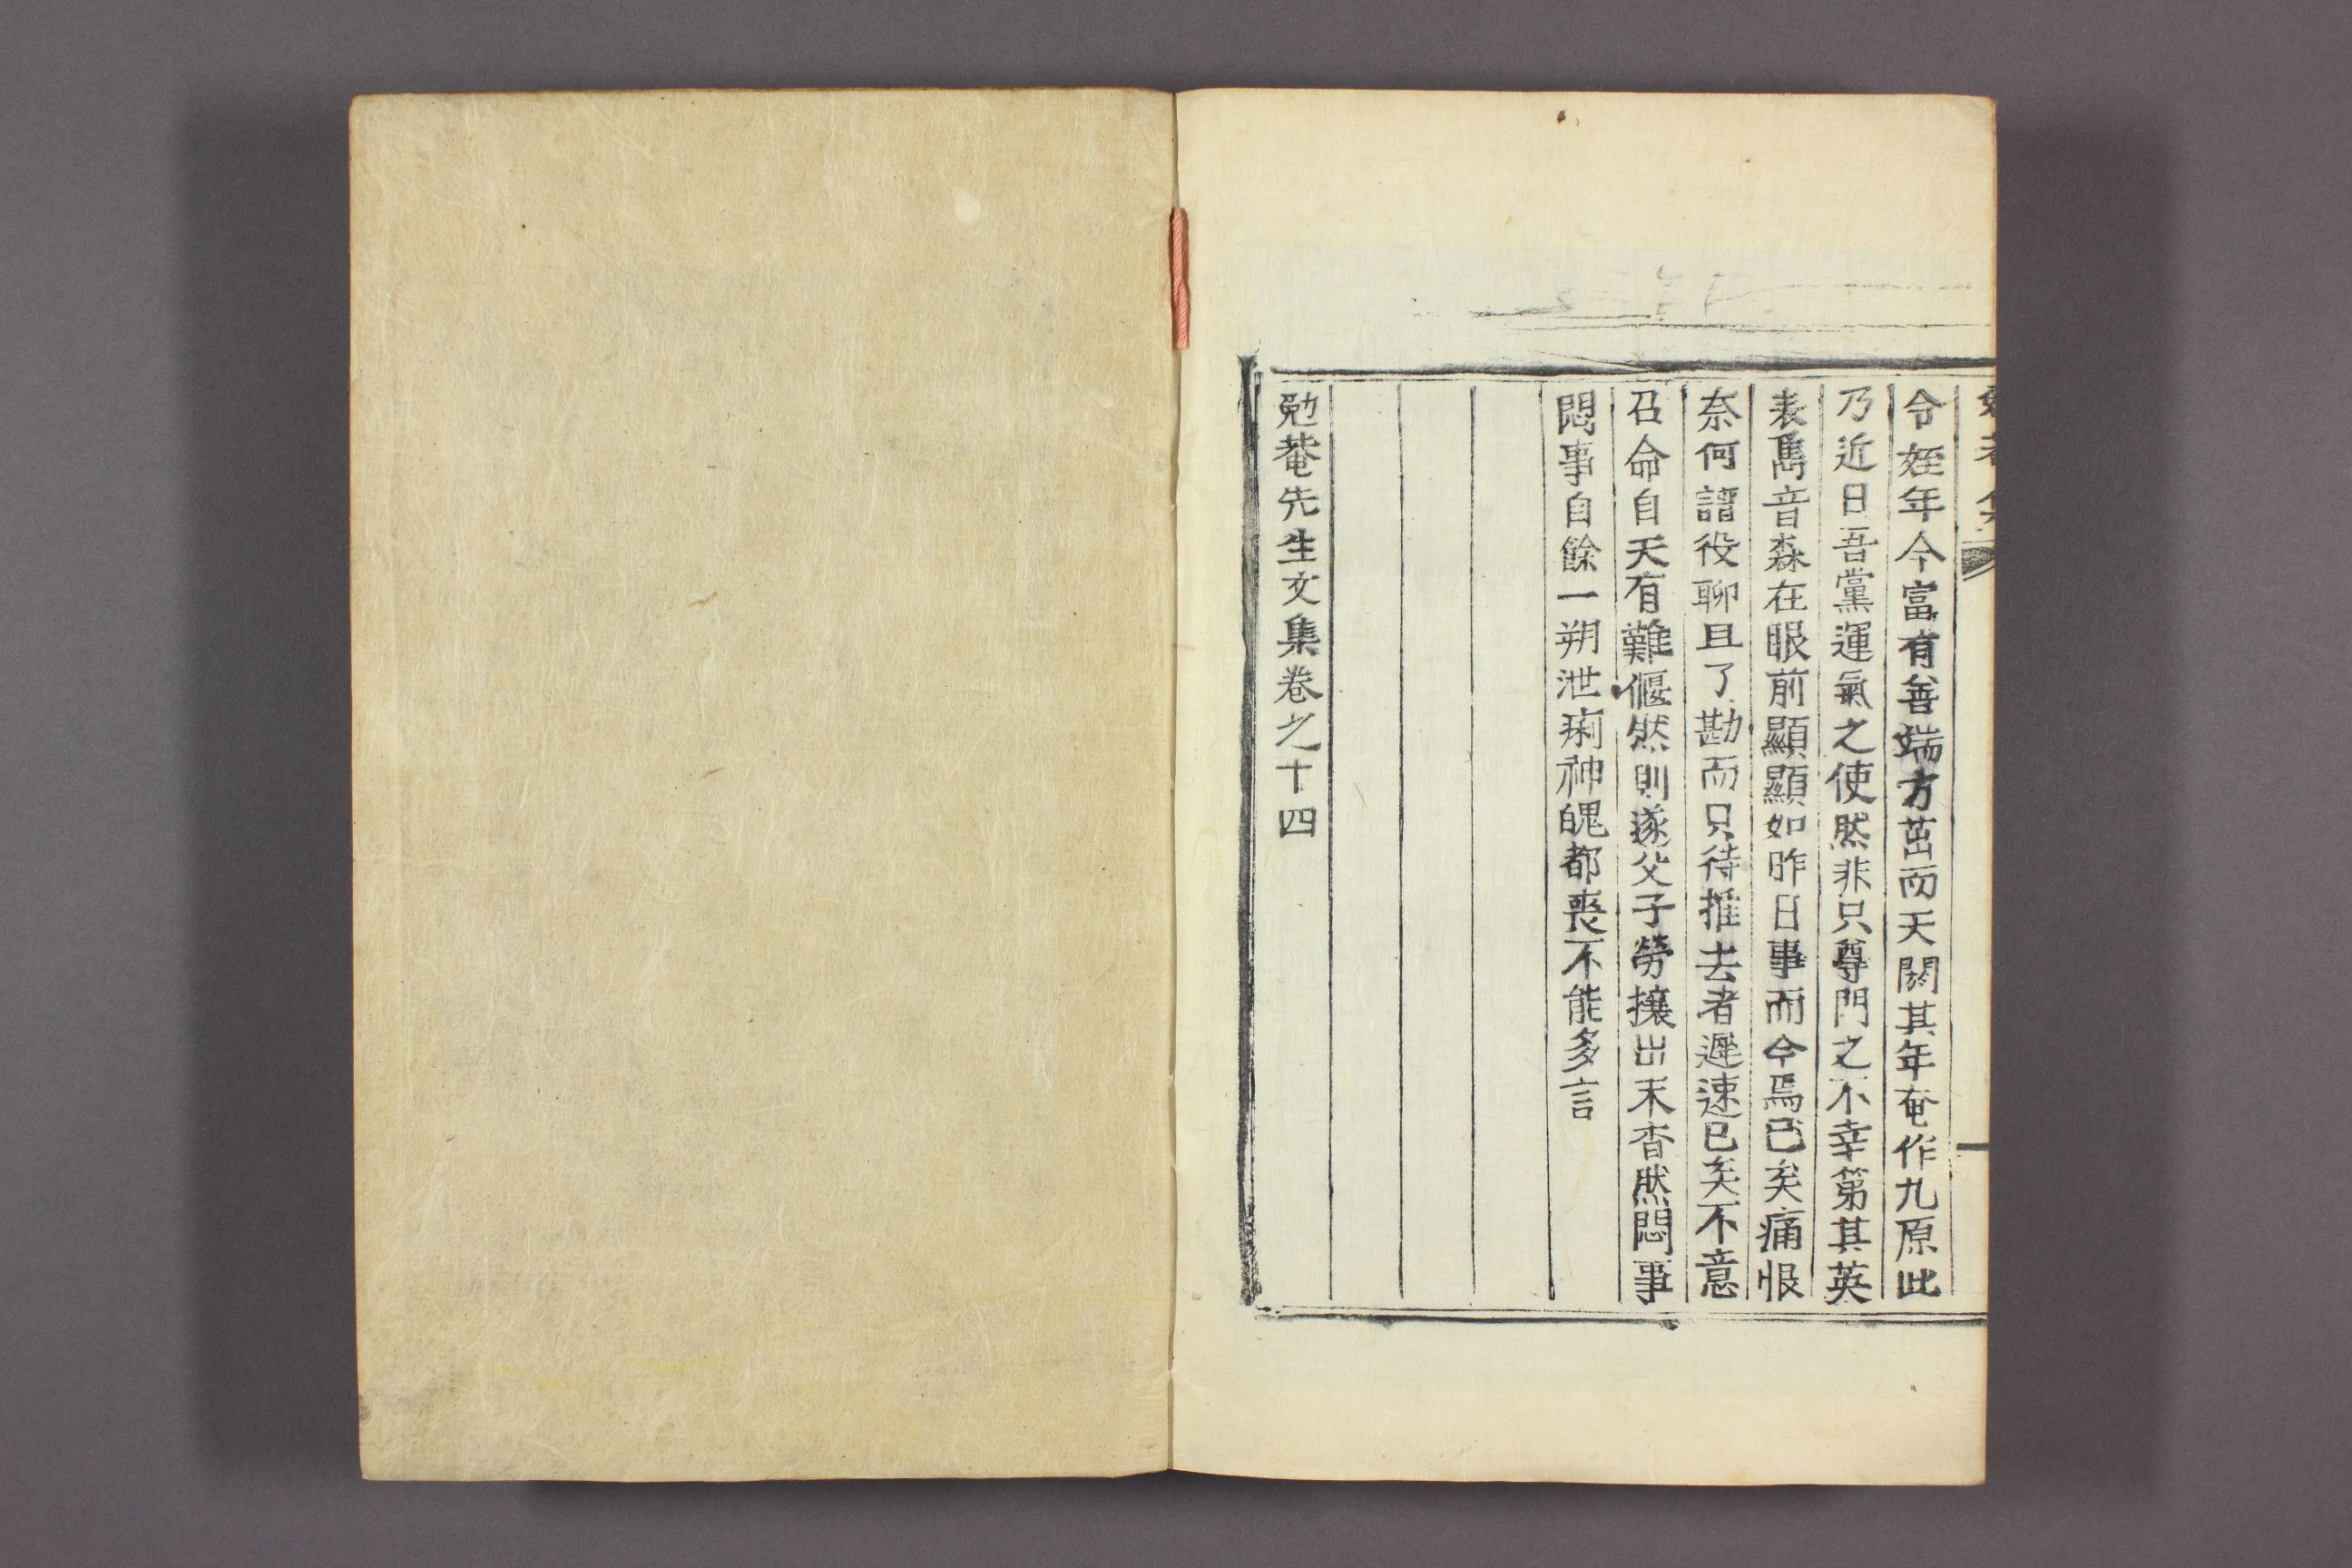 勉菴集
令姪年今富有善端方茁而天閼其年奄作九原此
乃近日吾黨運氣之使然非只尊門之不幸第其英
表雋音森在眼前顯顯如昨日事而今焉已矣痛恨
奈何譜役聊且了勘而只待推去者遲速已矣不意
召命自天有難偃然則遂父子勞攘出末杳然悶事
悶事自餘一朔泄痢神魄都喪不能多言
勉菴先生文集卷之十四